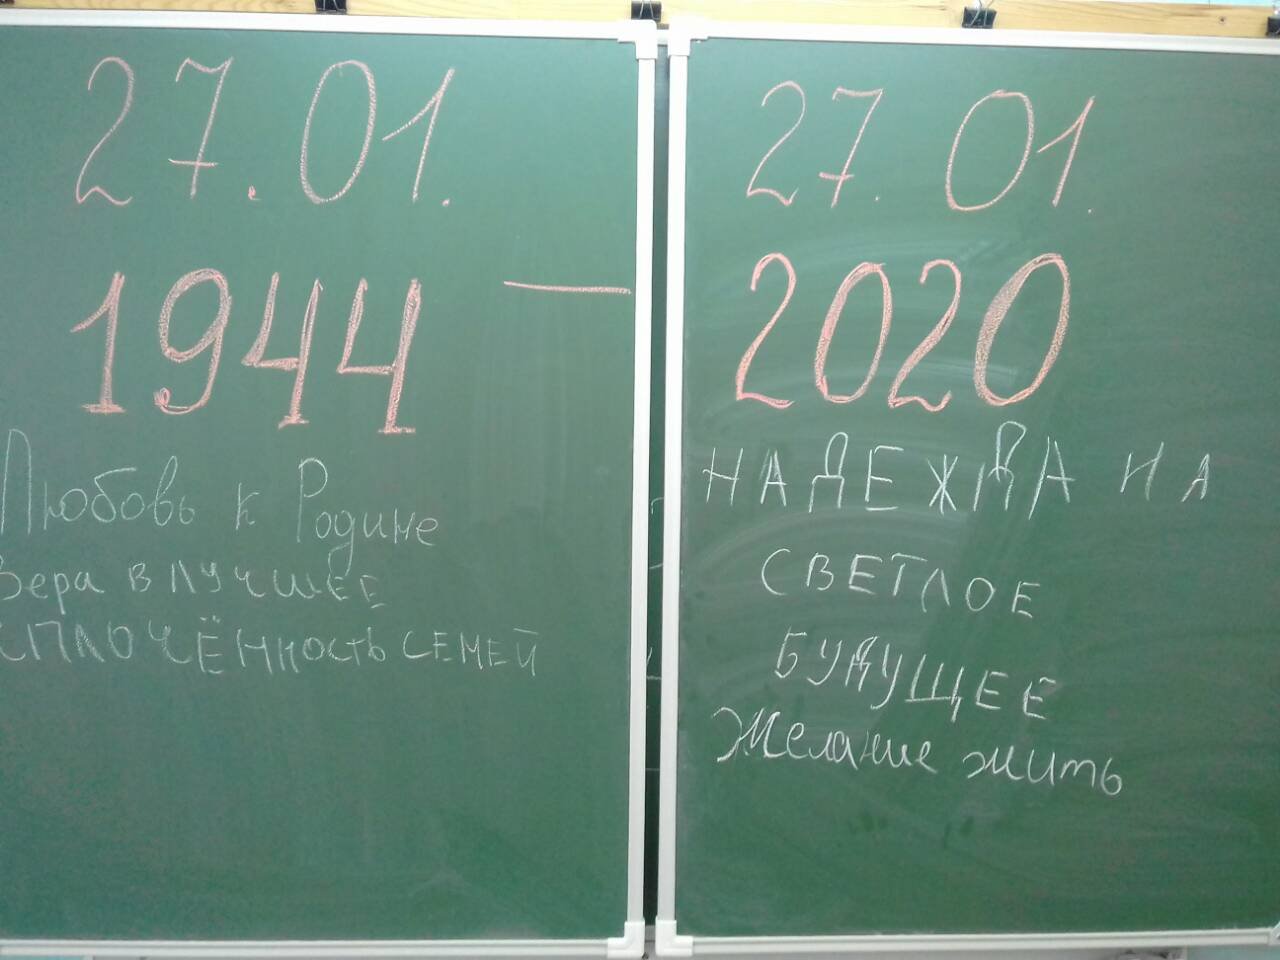 27.01.
1944 —
Любовь к Родине
Вера в лучшее
СПЛОЧЁННОСТЬ СЕМЕЙ
27.01.
2020
НАДЕЖДА НА
СВЕТЛОЕ
БУДУЩЕЕ
Желание жить